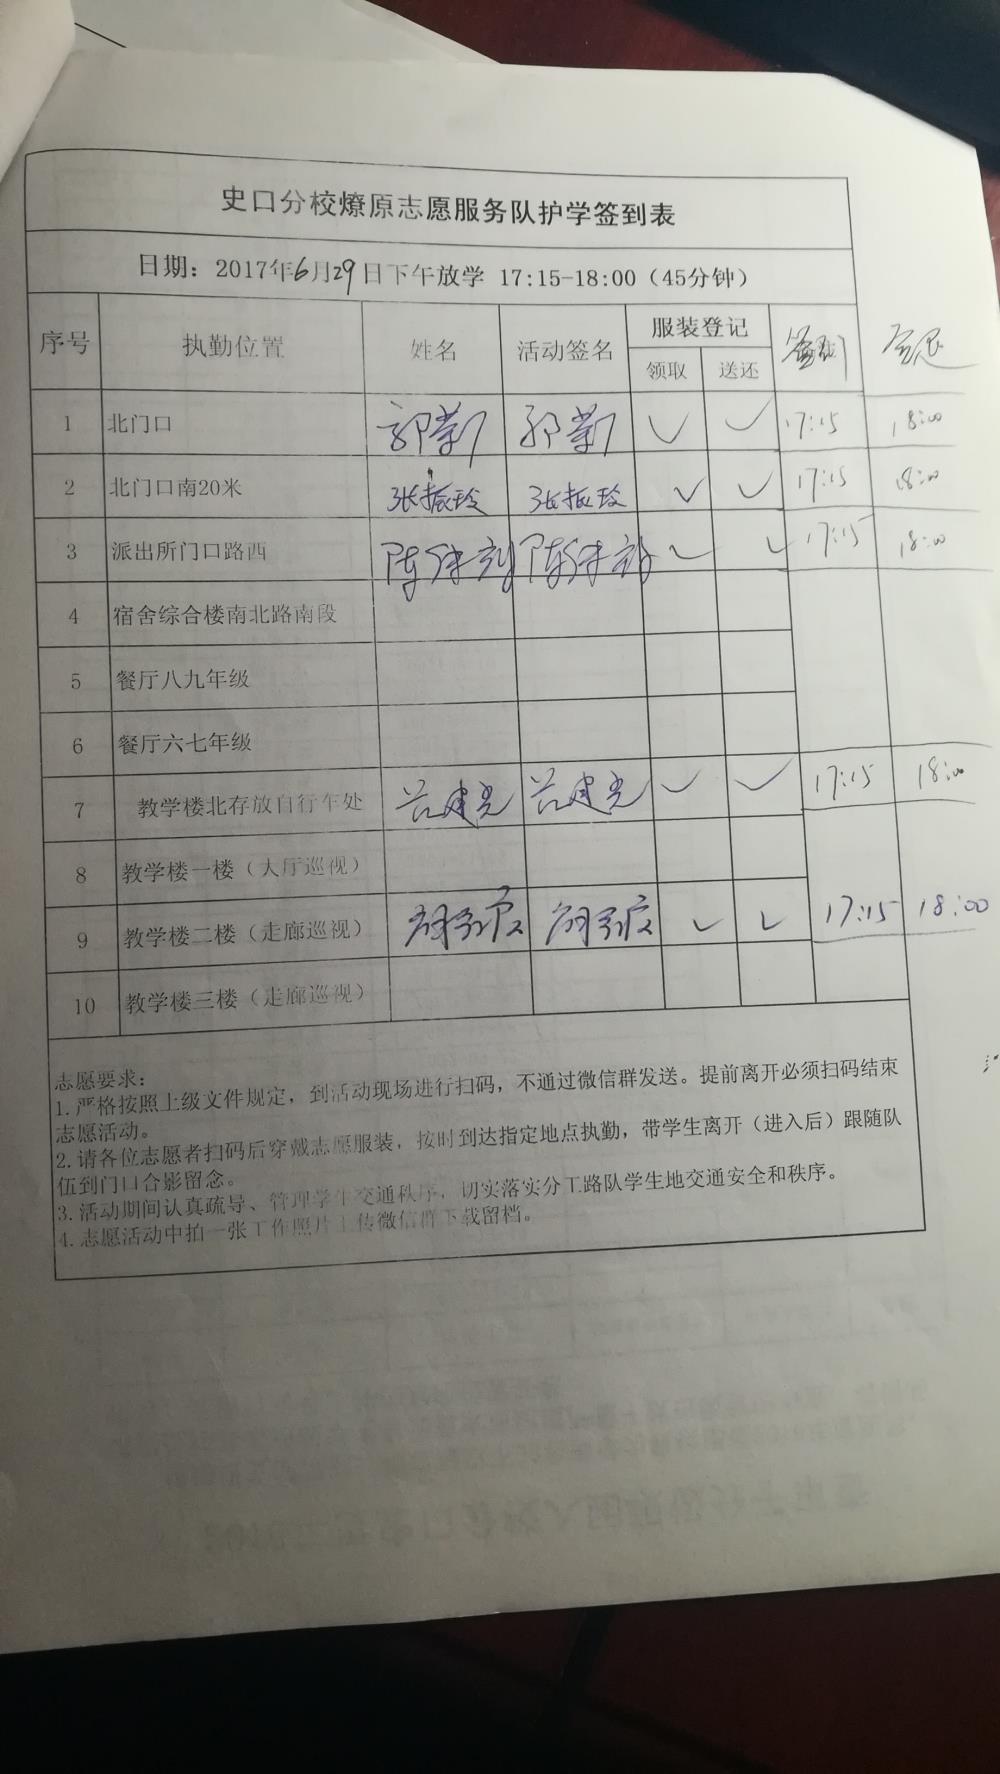 史口分校燎原志愿服务队护学签到表
日期：2017年6月29日下午放学 17:15-18:00（45分钟）
序号 执勤位置 姓名 活动签名 服装登记 签到
领取 送还
1 北门口 ✓ ✓ 17:15 18:00
2 北门口南20米 张振玲 张振玲 ✓ ✓ 17:15 18:00
3 派出所门口路西 ✓ ✓ 17:15 18:00
4 宿舍综合楼南北路南段
5 餐厅八九年级
6 餐厅六七年级
7 教学楼北存放自行车处 ✓ ✓ 17:15 18:00
8 教学楼一楼（大厅巡视）
9 教学楼二楼（走廊巡视） ✓ ✓ 17:15 18:00
10 教学楼三楼（走廊巡视）
志愿要求：
1.严格按照上级文件规定，到活动现场进行扫码，不通过微信群发送。提前离开必须扫码结束
志愿活动。
2.请各位志愿者扫码后穿戴志愿服装，按时到达指定地点执勤，带学生离开（进入后）跟随队
伍到门口合影留念。
3.活动期间认真疏导、管理学生交通秩序，切实落实分工路队学生地交通安全和秩序。
4.志愿活动中拍一张工作照片上传微信群下载留档。